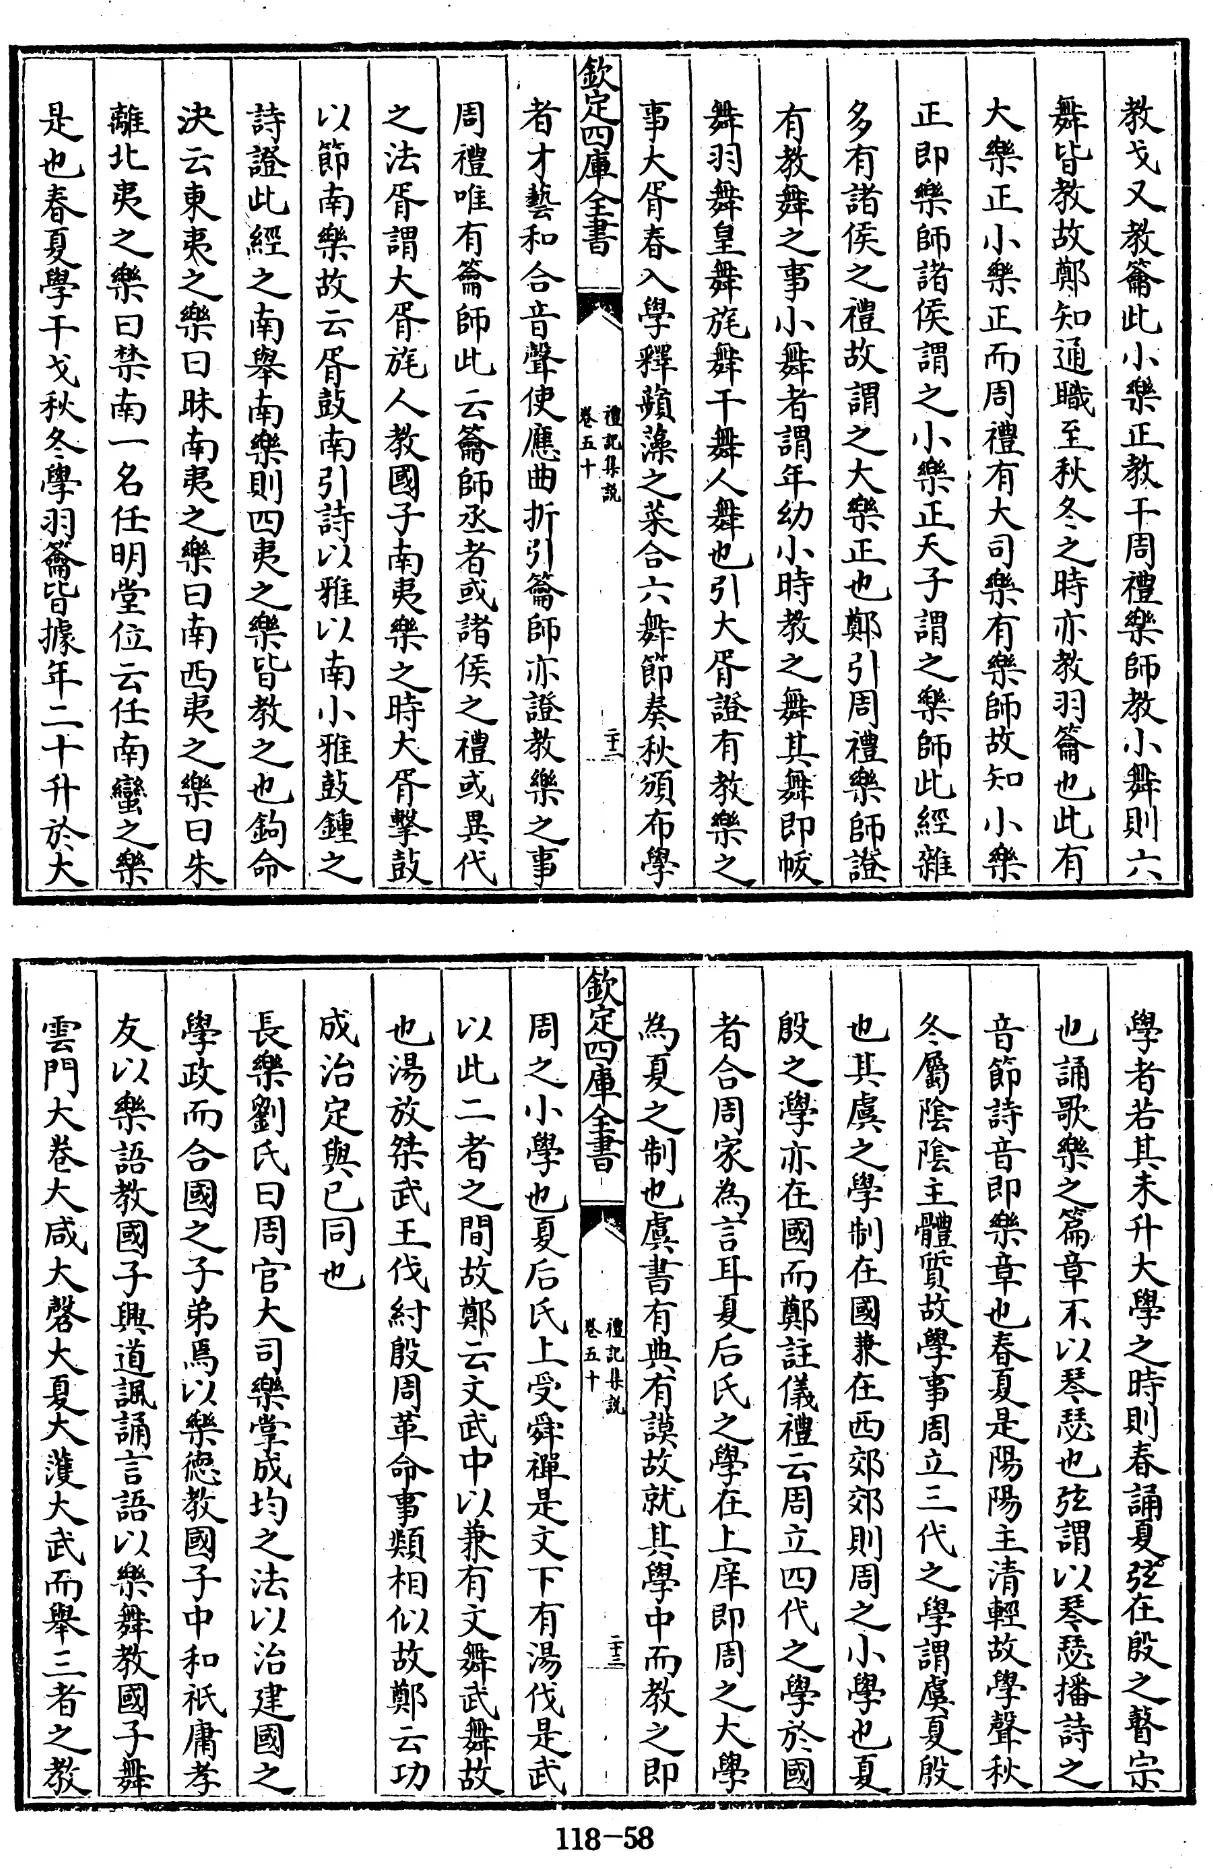 教戈又教籥此小樂正教干周禮樂師教小舞則六
舞皆教故鄭知通職至秋冬之時亦教羽籥也此有
大樂正小樂正而周禮有大司樂有樂師故知小樂
正即樂師諸侯謂之小樂正天子謂之樂師此經雜
多有諸侯之禮故謂之大樂正也鄭引周禮樂師證
有教舞之事小舞者謂年幼小時教之舞其舞即帗
舞羽舞皇舞旄舞干舞人舞也引大胥證有教樂之
事大胥春入學釋蘋藻之菜合六舞節奏秋頒布學
欽定四庫全書
禮記集説
卷五十
二十二
者才藝和合音聲使應曲折引籥師亦證教樂之事
周禮唯有籥師此云籥師丞者或諸侯之禮或異代
之法胥謂大胥旄人教國子南夷樂之時大胥擊鼓
以節南樂故云胥鼓南引詩以雅以南小雅鼓鍾之
詩證此經之南舉南樂則四夷之樂皆教之也鉤命
決云東夷之樂曰昧南夷之樂曰南西夷之樂曰朱
離北夷之樂曰禁南一名任明堂位云任南蠻之樂
是也春夏學干戈秋冬學羽籥皆據年二十升於大
學者若其未升大學之時則春誦夏弦在殷之瞽宗
也誦歌樂之篇章不以琴瑟也弦謂以琴瑟播詩之
音節詩音即樂章也春夏是陽陽主清輕故學聲秋
冬屬陰陰主體質故學事周立三代之學謂虞夏殷
也其虞之學制在國兼在西郊郊則周之小學也夏
殷之學亦在國而鄭註儀禮云周立四代之學於國
者合周家為言耳夏后氏之學在上庠即周之大學
為夏之制也虞書有典有謨故就其學中而教之即
欽定四庫全書
禮記集說
卷五十
二十三
周之小學也夏后氏上受舜禪是文下有湯伐是武
以此二者之間故鄭云文武中以兼有文舞武舞故
也湯放桀武王伐紂殷周革命事類相似故鄭云功
成治定與已同也
長樂劉氏曰周官大司樂掌成均之法以治建國之
學政而合國之子弟焉以樂德教國子中和祇庸孝
友以樂語教國子興道諷誦言語以樂舞教國子舞
雲門大卷大咸大磬大夏大濩大武而舉三者之教
118-58